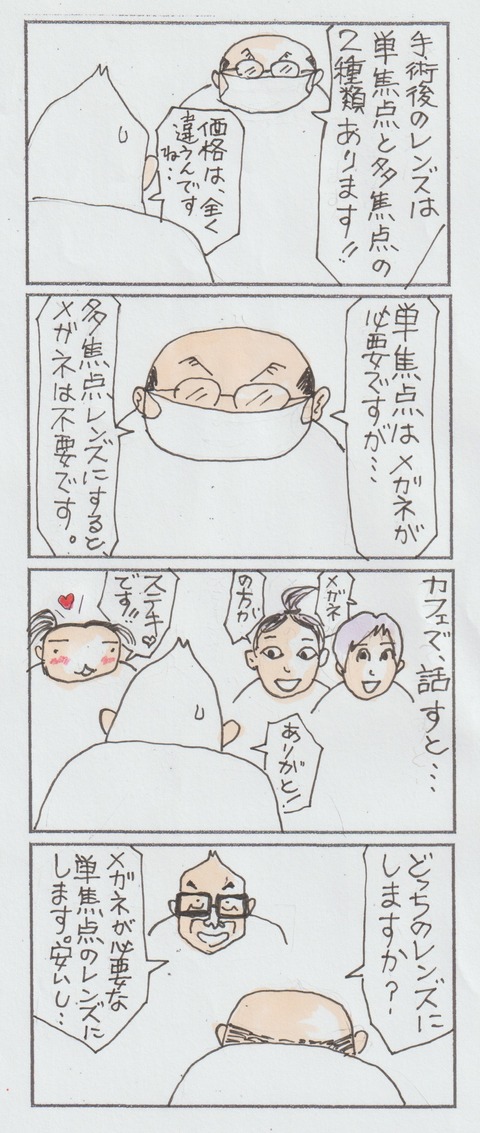 手術後のレンズは
単焦点と多焦点の
2種類あります!!
価格は、全く
違うんです
ね…
単焦点はメガネが
必要ですが…
多焦点レンズにすると
メガネは不要です。
カフェで、話すと…
メガネ
の方が
ステキ♥
です!!
ありがと!
どっちのレンズに
しますか?
メガネが必要な
単焦点のレンズに
します。安いし…